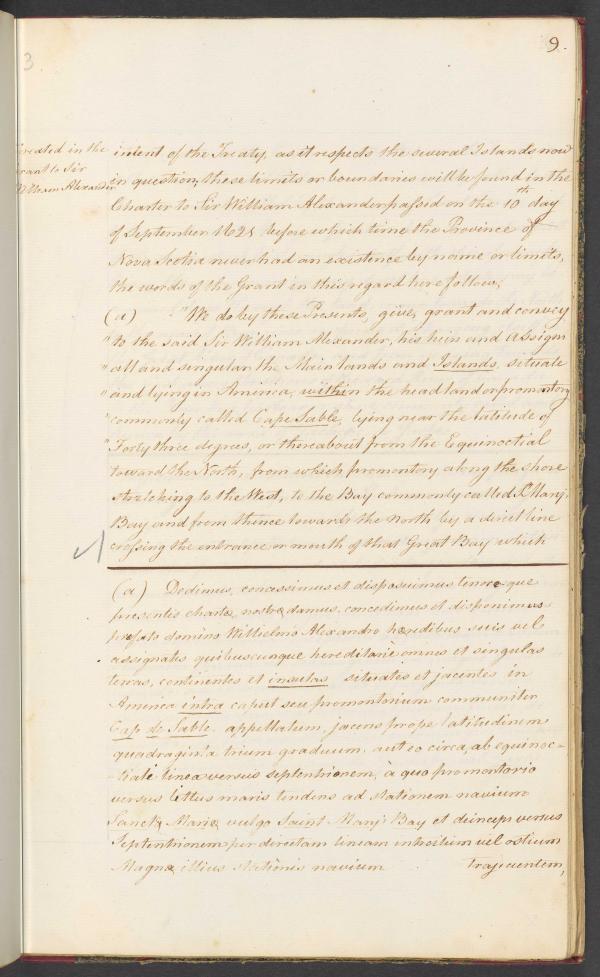 3
9.
created in the
grant to Sir
William Alexander
intent of the Treaty, as it respects the several Islands now
in question, these limits or boundaries will be found in the
Charter to Sir William Alexander passed on the 10th day
of September 1621 before which time the Province of
Nova Scotia never had an existence by name or limits,
the words of the Grant in this regard here follow,
(a) "We do by these Presents, give, grant and convey
" to the said Sir William Alexander, his heirs and Assigns
" all and singular the Main lands and Islands, situate
" and lying in America, within the head land or promontory
" commonly called Cape Sable, lying near the latitude of
" Forty three degrees, or thereabout from the Equinoctial
toward the North, from which promontory along the shore
stretching to the West, to the Bay commonly called St Marys
Bay and from thence towards the north by a direct line
crossing the entrance or mouth of that Great Bay which
(a) Dedimus, concessimus et disposuimus tenoreque
presentis chartæ nostræ damus, concedimus et disponimus
præfato domino Willielmo Alexandro hæredibus suis vel
assignatis quibuscunque hereditarie omnes et singulas
terras, continentes et insulas situatas et jacentes in
America intra caput seu promontorium communiter
Cap de Sable appellatum, jacens prope latitudinem
quadraginta trium graduum, aut eo circa, ab equinoc-
-tiale linea versus septentrionem, à quo promontorio
versus littus maris tendens ad stationem navium
Sanctæ Mariæ vulgo Saint Marys Bay et deinceps versus
Septentrionem per directam lineam introitum vel ostium
Magnæ illius stationis navium trajicientem,